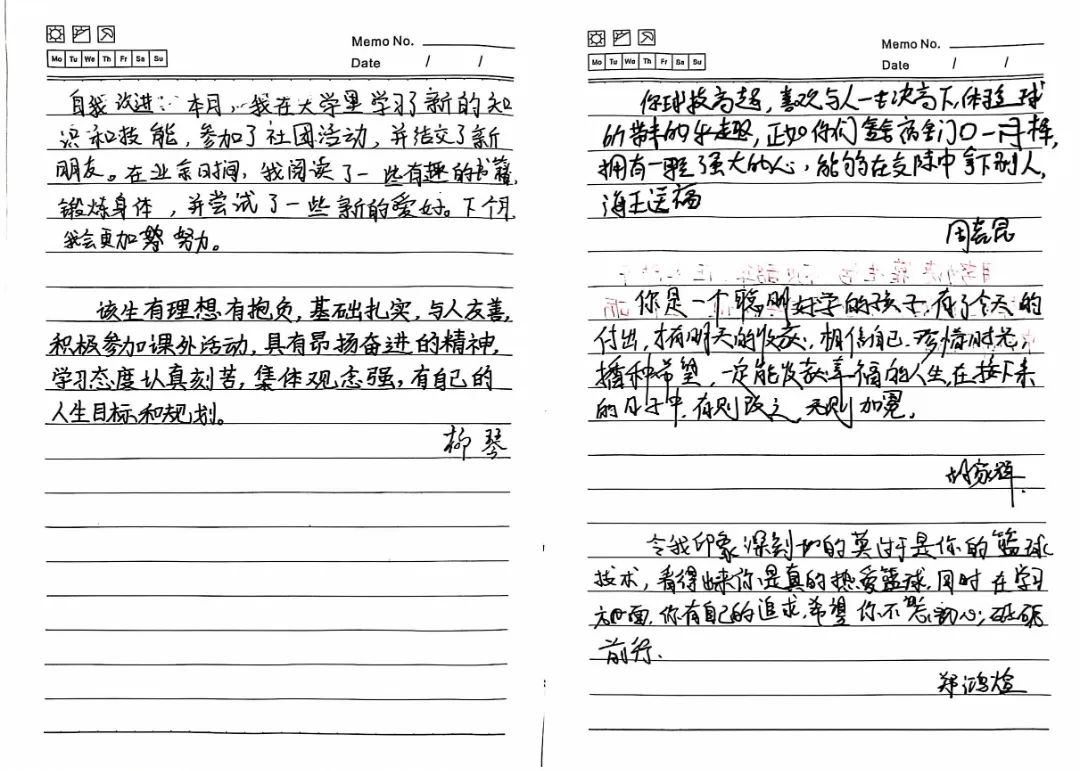 Mo Tu We Th Fr Sa Su
Memo No.
Date / /
自我改进：本月，我在大学里学习了新的知
识和技能，参加了社团活动，并结交了新
朋友。在业余时间，我阅读了一些有趣的书籍，
锻炼身体，并尝试了一些新的爱好。下个月
我会更加努力。
该生有理想有抱负，基础扎实，与人友善，
积极参加课外活动，具有昂扬奋进的精神，
学习态度认真刻苦，集体观念强，有自己的
人生目标和规划。
柳琴
Mo Tu We Th Fr Sa Su
Memo No.
Date / /
你球技高超，喜欢与人一击决高下，体验球
所带来的乐趣，正如你们宿舍门口一同挥，
拥有一颗强大的心，能够在交际中拿下别人，
海王送福
周嘉昆
你是一个聪明好学的孩子，有了今天的
付出，才有明天的收获，相信自己，珍惜时光，
播种希望，一定能收获幸福的人生，在接下来
的日子中，有则改之，无则加冕。
胡家辉
令我印象深刻的莫过于是你的篮球
技术，看得出来你是真的热爱篮球，同时在学习
方面，你有自己的追求，希望你不忘初心，砥砺
前行。
郑鸿煊